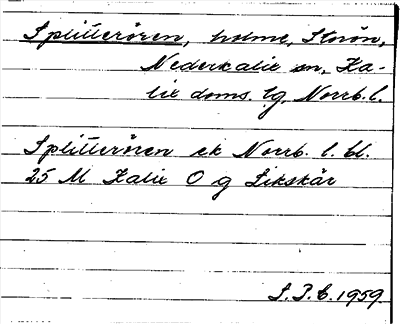 Splitterören, holme, Storön,
Nederkalix sn, Ka-
lix doms. lg, Norrb. l.
Splitterören ek Norrb. l. bl.
25 M Kalix O g Likskär
S.P.C. 1959